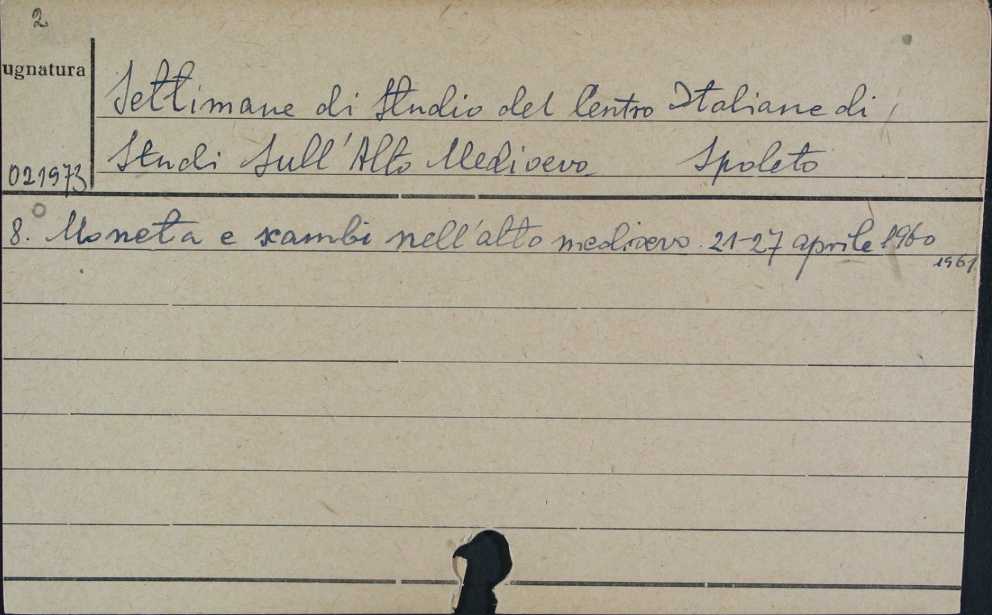 2
ugnatura
Settimane di Studio del Centro Italiane di
Studi Sull'Alto Medioevo Spoleto
021973
8. Moneta e scambi nell'alto medioevo. 21-27 aprile 1960
1961